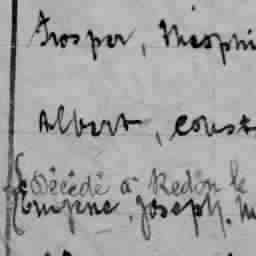 Prosper, Théophi
Albert, Const
Décédé à Redon le
Eugène, Joseph. M